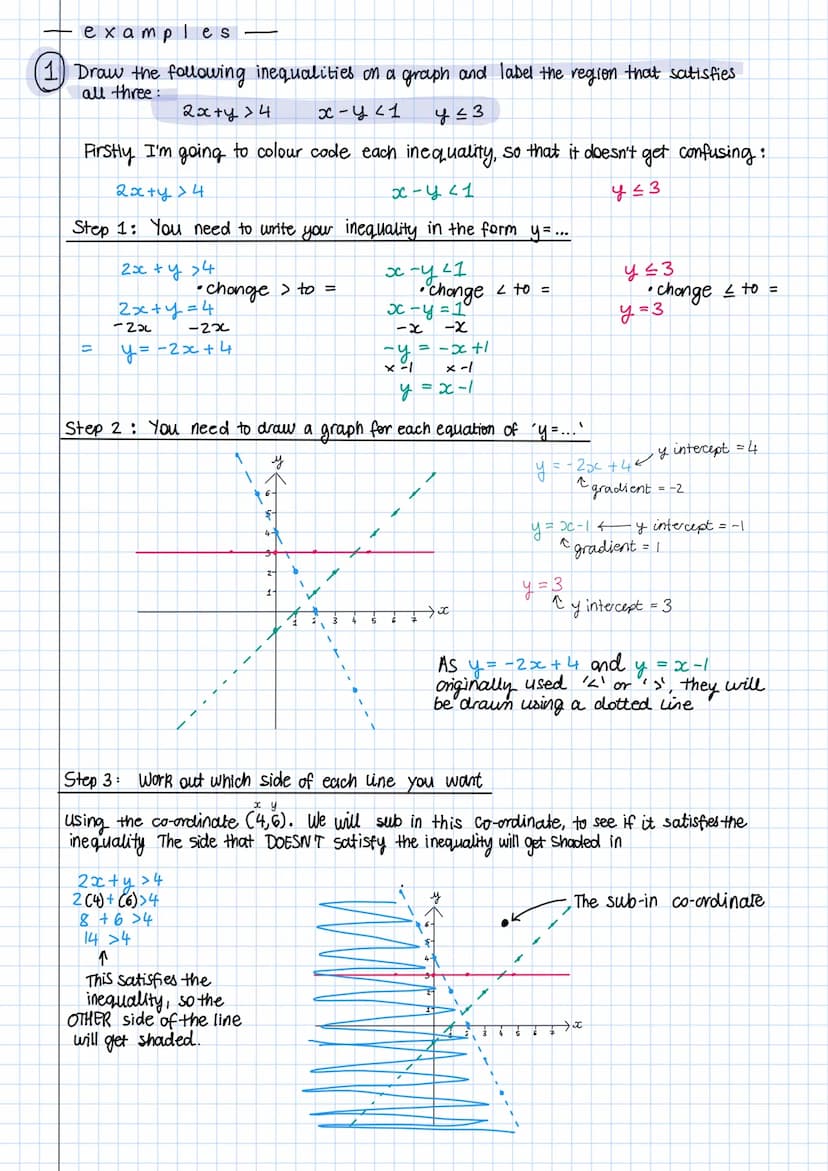 — examples —
① Draw the following inequalities on a graph and label the region that satisfies
all three:
2x+y>4 x-y<1 y≤3
Firstly I'm going to colour code each inequality, so that it doesn't get confusing:
2x+y>4 x-y<1 y≤3
Step 1: You need to write your inequality in the form y=...
2x+y>4 x-y<1 y≤3
•change > to = •change < to = •change ≤ to =
2x+y=4 x-y=1 y=3
-2x -2x -x -x
= y=-2x+4 -y=-x+1
x-1 x-1
y=x-1
Step 2: You need to draw a graph for each equation of 'y=...'
y=-2x+4 ↙ y intercept = 4
↑ gradient = -2
y=x-1 ← y intercept = -1
↑ gradient = 1
y=3
↑ y intercept = 3
y
6
5
4
3
2
1
1 2 3 4 5 6 7 x
As y=-2x+4 and y=x-1
originally used '<' or '>', they will
be drawn using a dotted line
Step 3: Work out which side of each line you want
x y
Using the co-ordinate (4,6). We will sub in this co-ordinate, to see if it satisfies the
inequality The side that DOESN'T satisfy the inequality will get shaded in
2x+y>4
2(4)+(6)>4
8+6>4
14>4
↑
This satisfies the
inequality, so the
OTHER side of the line
will get shaded.
The sub-in co-ordinate
y
6
5
4
3
2
1
1 2 3 4 5 6 7 x